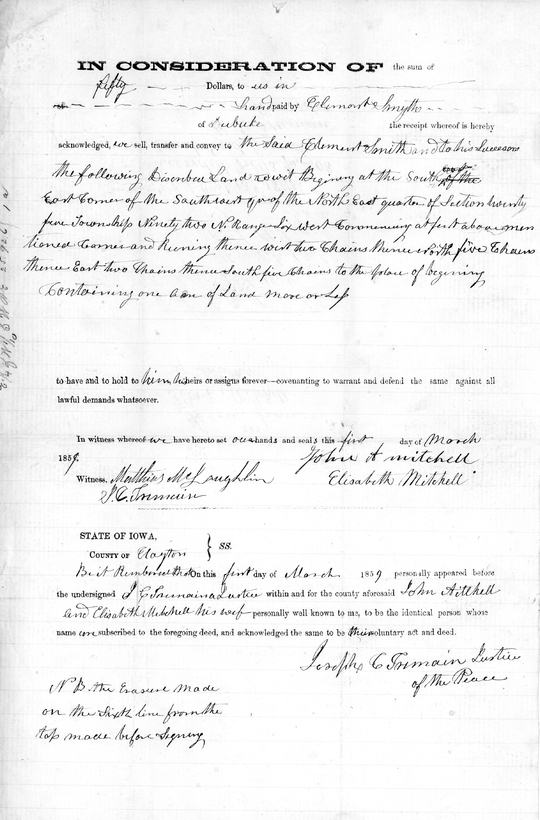 IN CONSIDERATION OF the sum of
fifty Dollars, to us in
hand paid by Clement Smyth
of Dubuke the receipt whereof is hereby
acknowledged, we sell, transfer and convey to the Said Clement Smith and to his Sucessors
the following Discribed Land to wit Begining at the South
East Corner of the Southwest qr of the North East quarter of Section twenty
five Township Ninety two N. Range Six west Commencing at first above men
tioned Corner and Runing thence west two Chains thence North five Chains
thence East two Chains thence South five Chains to the place of begining
Containing one Acre of Land more or Less
to have and to hold to him his heirs or assigns forever—covenanting to warrant and defend the same against all
lawful demands whatsoever.
In witness whereof we have hereto set our hands and seals this first day of March
1859.
John A Mitchell
Witness. Matthias McLaughlin
Elisabeth Mitchell
J. C. Tremain
STATE OF IOWA,
COUNTY OF Clayton } SS.
Be it Remembered that On this first day of March 1859 personally appeared before
the undersigned J C Tremain a Justice within and for the county aforesaid John A Mitchell
and Elisabeth Mitchell his wife personally well known to me, to be the identical person whose
name are subscribed to the foregoing deed, and acknowledged the same to be their voluntary act and deed.
Joseph C Tremain Justice
of the Peace
N B the Erasure made
on the Sixth line from the
top made before Signing